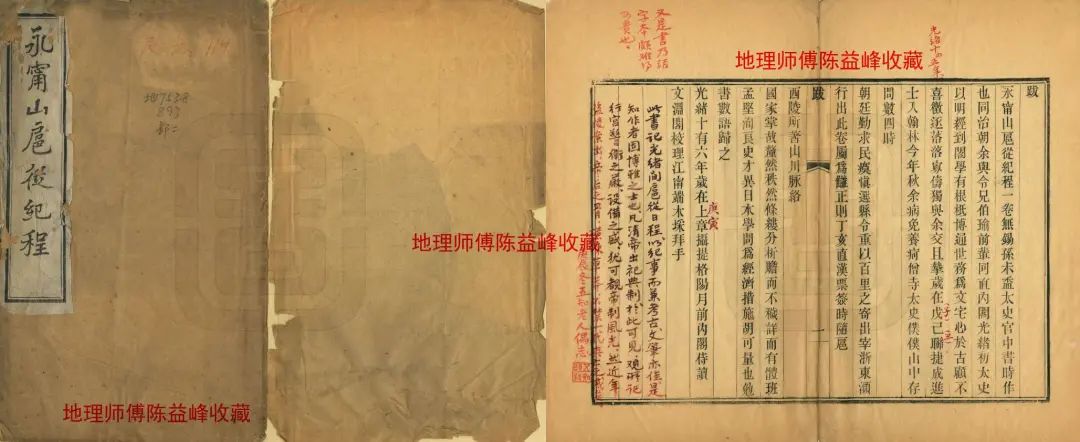 永甯山扈從紀程
地753.8
893
部二
114
地理师傅陈益峰收藏
地理师傅陈益峰收藏
地理师傅陈益峰收藏
跋
永甯山扈從紀程一卷無錫孫未齋太史官中書時作
也同治朝余與令兄伯瑜前輩同直內閣光緒初太史
以明經到閣學有根柢博通世務爲文字必於古顧不
喜徵逐落落寡儔獨與余交且摯歲在戊己聯捷成進
士入翰林今年秋余病免養疴僧寺太史僕僕山中存
問數四時
朝廷勤求民瘼慎選縣令重以百里之寄出宰浙東瀕
行出此卷屬爲讎正則丁亥直漢票簽時隨扈
跋
二
西陵所著山川脉絡
國家掌故釐然秩然條縷分析贍而不穢詳而有體班
孟堅洵良史才異日本學問爲經濟措施胡可量也勉
書數語歸之
光緒十有六年歲在上章攝提格陽月前內閣侍讀
庚寅
文淵閣校理江甯端木埰拜手
此書記光緒間扈從日程以紀事而兼考古文筆亦佳是
知作者固博雅之士也凡清帝出祀典制於此可見觀所記
行宮警衛之嚴設備之盛猶可觀帝制風光然近年
庚辰冬五知老人偶志
又是書乃活
字本頗難得
可貴也